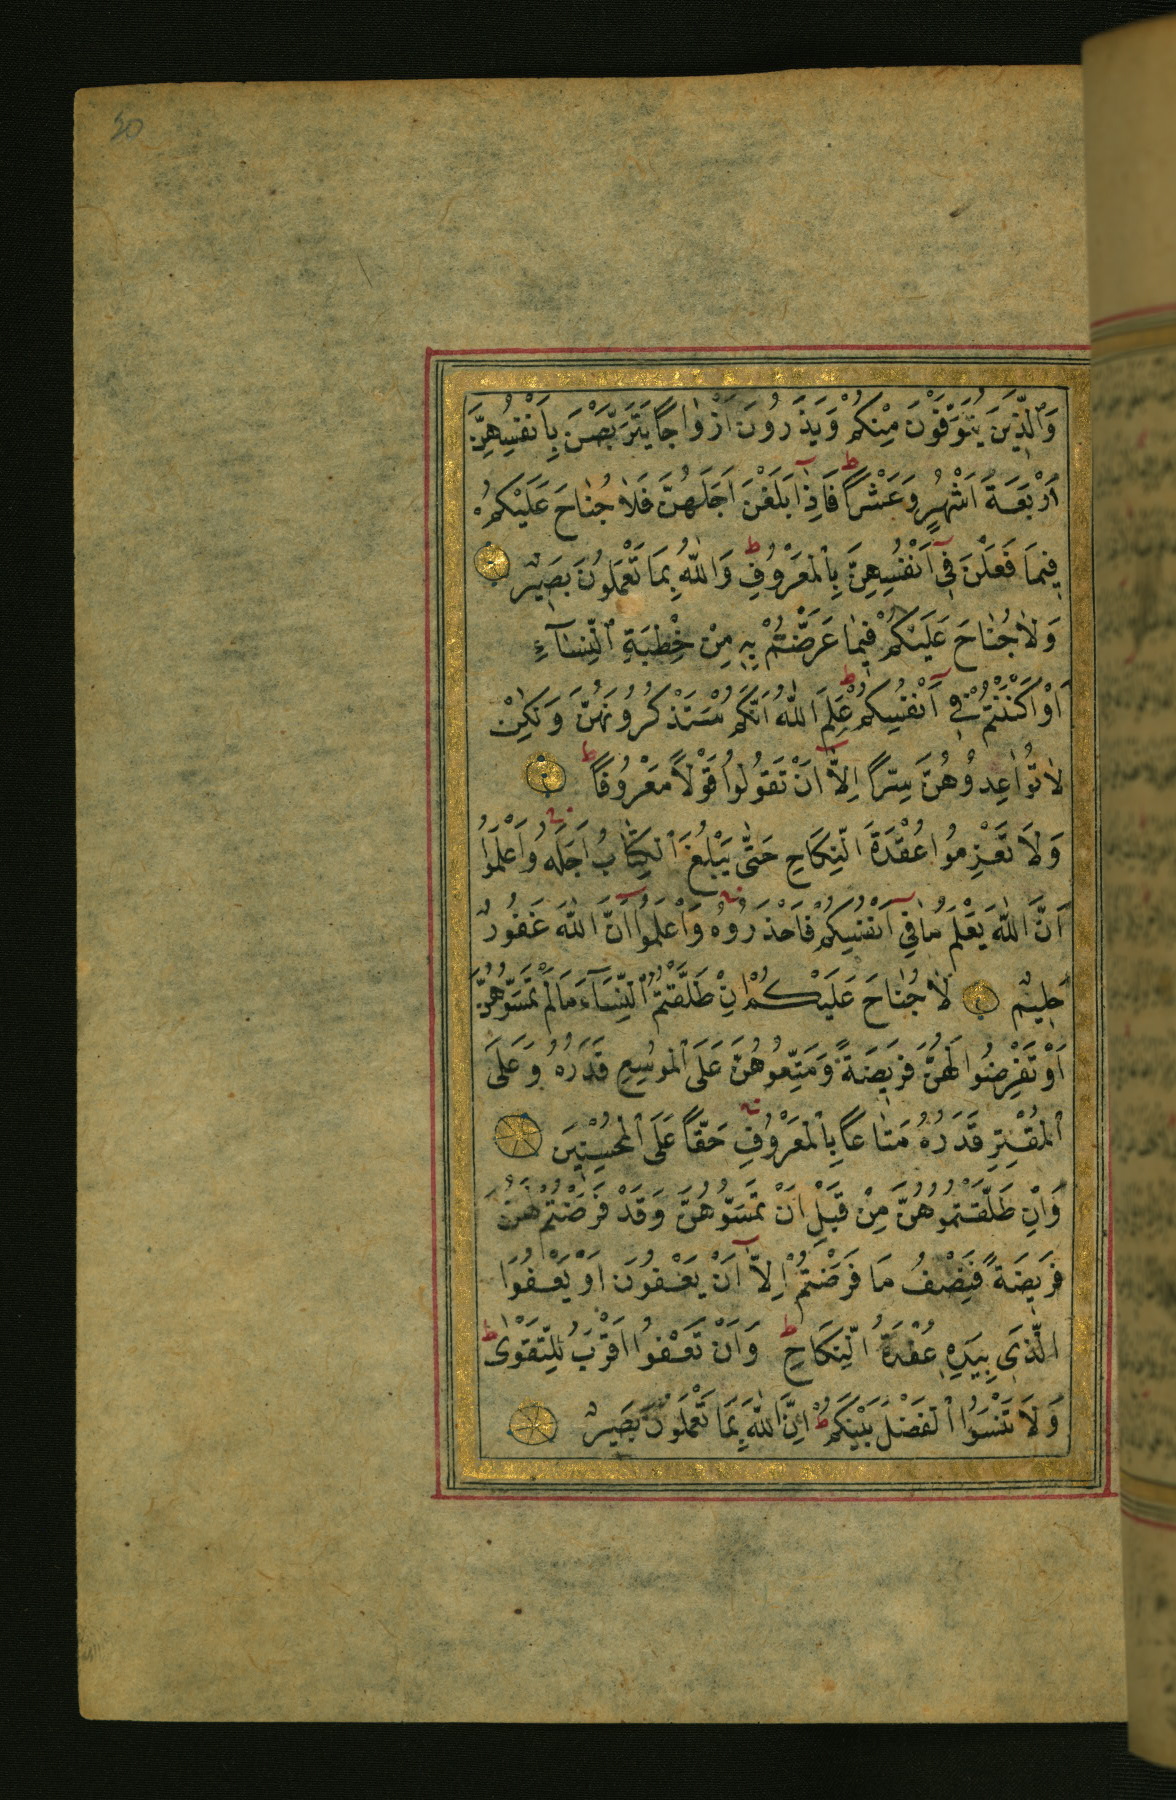 20
وَالَّذِينَ يُتَوَفَّوْنَ مِنْكُمْ وَيَذَرُونَ اَزْوٰاجًا يَتَرَبَّصْنَ بِاَنْفُسِهِنَّ
اَرْبَعَةَ اَشْهُرٍ وَعَشْرًا ط فَاِذٰا بَلَغْنَ اَجَلَهُنَّ فَلٰا جُنٰاحَ عَلَيْكُمْ
فِيمَا فَعَلْنَ فِي اَنْفُسِهِنَّ بِالْمَعْرُوفِ ط وَاللّٰهُ بِمَا تَعْمَلُونَ بَصِيرٌ
وَلٰا جُنٰاحَ عَلَيْكُمْ فِيمٰا عَرَّضْتُمْ بِهِ مِنْ خِطْبَةِ النِّسٰآءِ
اَوْ اَكْنَنْتُمْ فِي اَنْفُسِكُمْ ط عَلِمَ اللّٰهُ اَنَّكُمْ سَتَذْكُرُونَهُنَّ وَلٰكِنْ
لٰا تُوٰاعِدُوهُنَّ سِرًّا اِلَّآ اَنْ تَقُولُوا قَوْلًا مَعْرُوفًا ط
وَلَا تَعْزِمُوا عُقْدَةَ النِّكَاحِ حَتّٰى يَبْلُغَ الْكِتٰابُ اَجَلَهُ وَاعْلَمُوا
اَنَّ اللّٰهَ يَعْلَمُ مٰا فِي اَنْفُسِكُمْ فَاحْذَرُوهُ وَاعْلَمُوا اَنَّ اللّٰهَ غَفُورٌ
حَلِيمٌ لٰا جُنٰاحَ عَلَيْكُمْ اِنْ طَلَّقْتُمُ النِّسَآءَ مَا لَمْ تَمَسُّوهُنَّ
اَوْ تَفْرِضُوا لَهُنَّ فَرِيضَةً وَمَتِّعُوهُنَّ عَلَى الْمُوسِعِ قَدَرُهُ وَعَلَى
الْمُقْتِرِ قَدَرُهُ مَتٰاعًا بِالْمَعْرُوفِ حَقًّا عَلَى الْمُحْسِنِينَ
وَاِنْ طَلَّقْتُمُوهُنَّ مِنْ قَبْلِ اَنْ تَمَسُّوهُنَّ وَقَدْ فَرَضْتُمْ لَهُنَّ
فَرِيضَةً فَنِصْفُ مَا فَرَضْتُمْ اِلَّآ اَنْ يَعْفُونَ اَوْ يَعْفُوَا
الَّذِي بِيَدِهِ عُقْدَةُ النِّكَاحِ ط وَاَنْ تَعْفُوا اَقْرَبُ لِلتَّقْوٰى ط
وَلَا تَنْسَوُا الْفَضْلَ بَيْنَكُمْ ط اِنَّ اللّٰهَ بِمَا تَعْمَلُونَ بَصِيرٌ